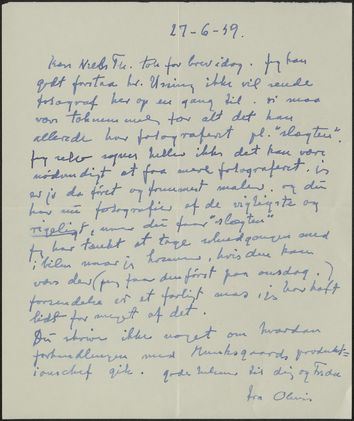 27-6-59.
Kære Niels Th. tak for brev idag. Jeg kan
godt forstaa hr. Using ikke vil sende
fotograf her op en gang til. vi maa
være taknemmelig for alt det han
allerede har fotograferet pl. "slagten".
Jeg selv synes heller ikke det kan være
nødvendigt at faa mere fotograferet. jeg
er jo da først og fremmest maler. og du
har nu fotografier af de vigtigste og
rigeligt, naar du faar "slagten"
Jeg har tænkt at tage med
i bilen naar jeg kommer, hvis den kan
være der (jeg faar den først paa onsdag.)
forsendelse er et farligt mas jeg har haft
lidt for meget af det.
Du skriver ikke noget om hvordan
forhandlingen med Munksgaards produkt-
ionschef gik. gode hilsen til dig og
fra